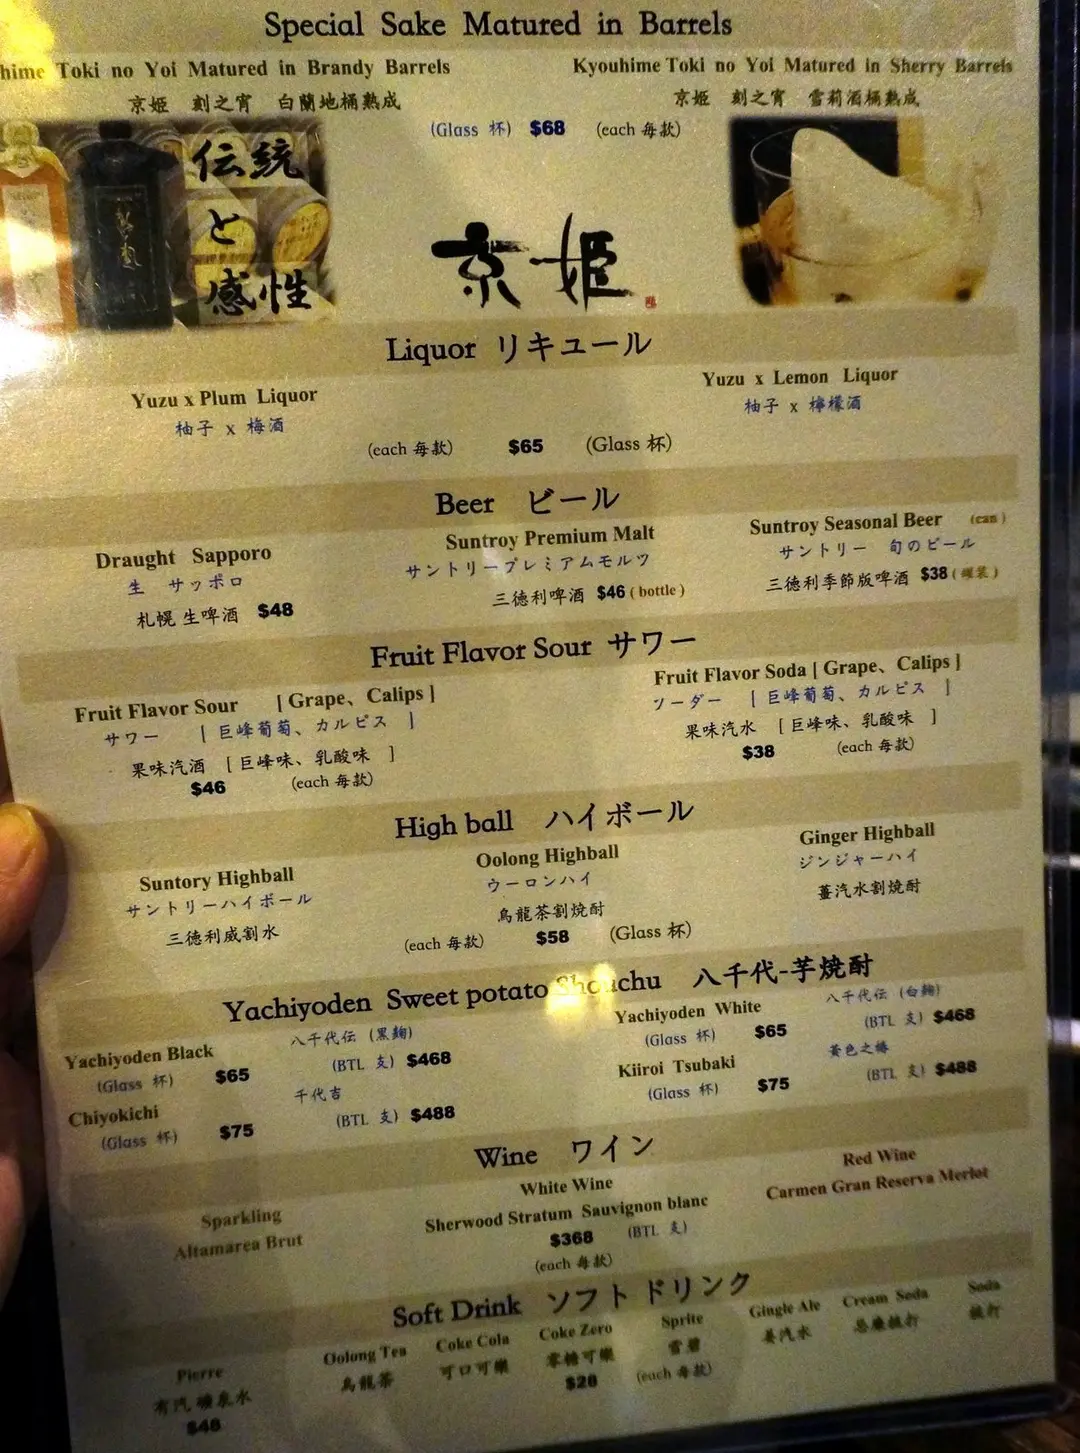 Special Sake Matured in Barrels
hime Toki no Yoi Matured in Brandy Barrels
Kyouhime Toki no Yoi Matured in Sherry Barrels
京姬 刻之宵 白蘭地桶熟成
京姬 刻之宵 雪莉酒桶熟成
(Glass 杯) $68 (each 每款)
伝統
と
感性
京姫
Liquor リキュール
Yuzu x Plum Liquor
Yuzu x Lemon Liquor
柚子 x 梅酒
柚子 x 檸檬酒
(each 每款) $65 (Glass 杯)
Beer ビール
Draught Sapporo
生 サッポロ
札幌 生啤酒 $48
Suntroy Premium Malt
サントリープレミアムモルツ
三德利啤酒 $46 ( bottle )
Suntroy Seasonal Beer (can)
サントリー 旬のビール
三德利季節版啤酒 $38 ( 罐装 )
Fruit Flavor Sour サワー
Fruit Flavor Sour [ Grape、Calips ]
サワー [ 巨峰葡萄、カルピス ]
果味汽酒 [ 巨峰味、乳酸味 ]
$46 (each 每款)
Fruit Flavor Soda [ Grape、Calips ]
ソーダー [ 巨峰葡萄、カルピス ]
果味汽水 [ 巨峰味、乳酸味 ]
$38 (each 每款)
High ball ハイボール
Suntory Highball
サントリーハイボール
三德利威割水
Oolong Highball
ウーロンハイ
烏龍茶割焼酎
Ginger Highball
ジンジャーハイ
薑汽水割焼酎
(each 每款) $58 (Glass 杯)
Yachiyoden Sweet potato Shouchu 八千代-芋焼酎
Yachiyoden Black 八千代伝 (黒麹)
(Glass 杯) $65 (BTL 支) $468
Chiyokichi 千代吉
(Glass 杯) $75 (BTL 支) $488
Yachiyoden White 八千代伝 (白麹)
(Glass 杯) $65 (BTL 支) $468
Kiiroi Tsubaki 黃色之椿
(Glass 杯) $75 (BTL 支) $488
Wine ワイン
Sparkling
Altamarea Brut
White Wine
Sherwood Stratum Sauvignon blanc
$368 (BTL 支)
(each 每款)
Red Wine
Carmen Gran Reserva Merlot
Soft Drink ソフト ドリンク
Pierre
有汽礦泉水
$48
Oolong Tea
烏龍茶
Coke Cola
可口可樂
Coke Zero
零糖可樂
$28
Sprite
雪碧
(each 每款)
Gingle Ale
姜汽水
Cream Soda
忌廉梳打
Soda
梳打